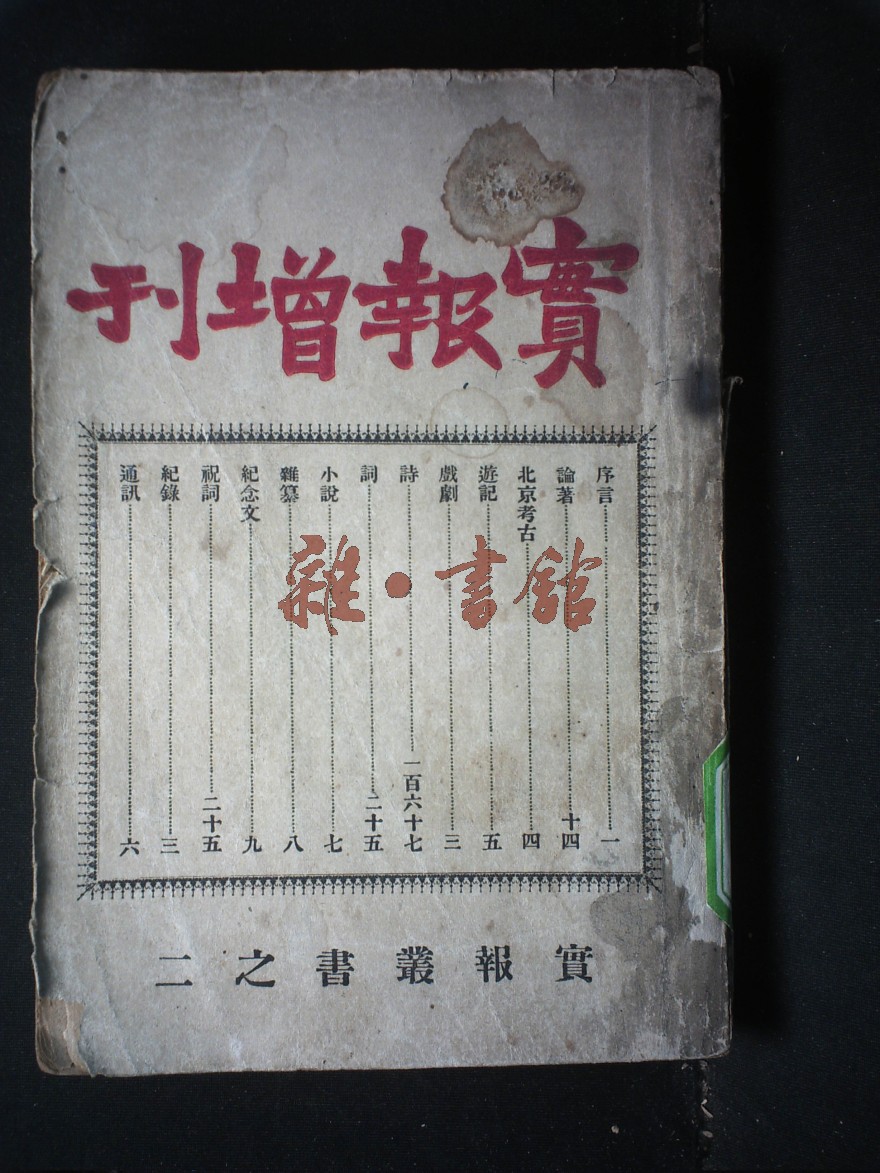 實報增刊
序言 一
論著 十四
北京考古 四
遊記 五
戲劇 三
詩 一百六十七
詞 二十五
小說 七
雜纂 八
紀念文 九
祝詞 二十五
紀錄 三
通訊 六
雜·書舘
實報叢書之二